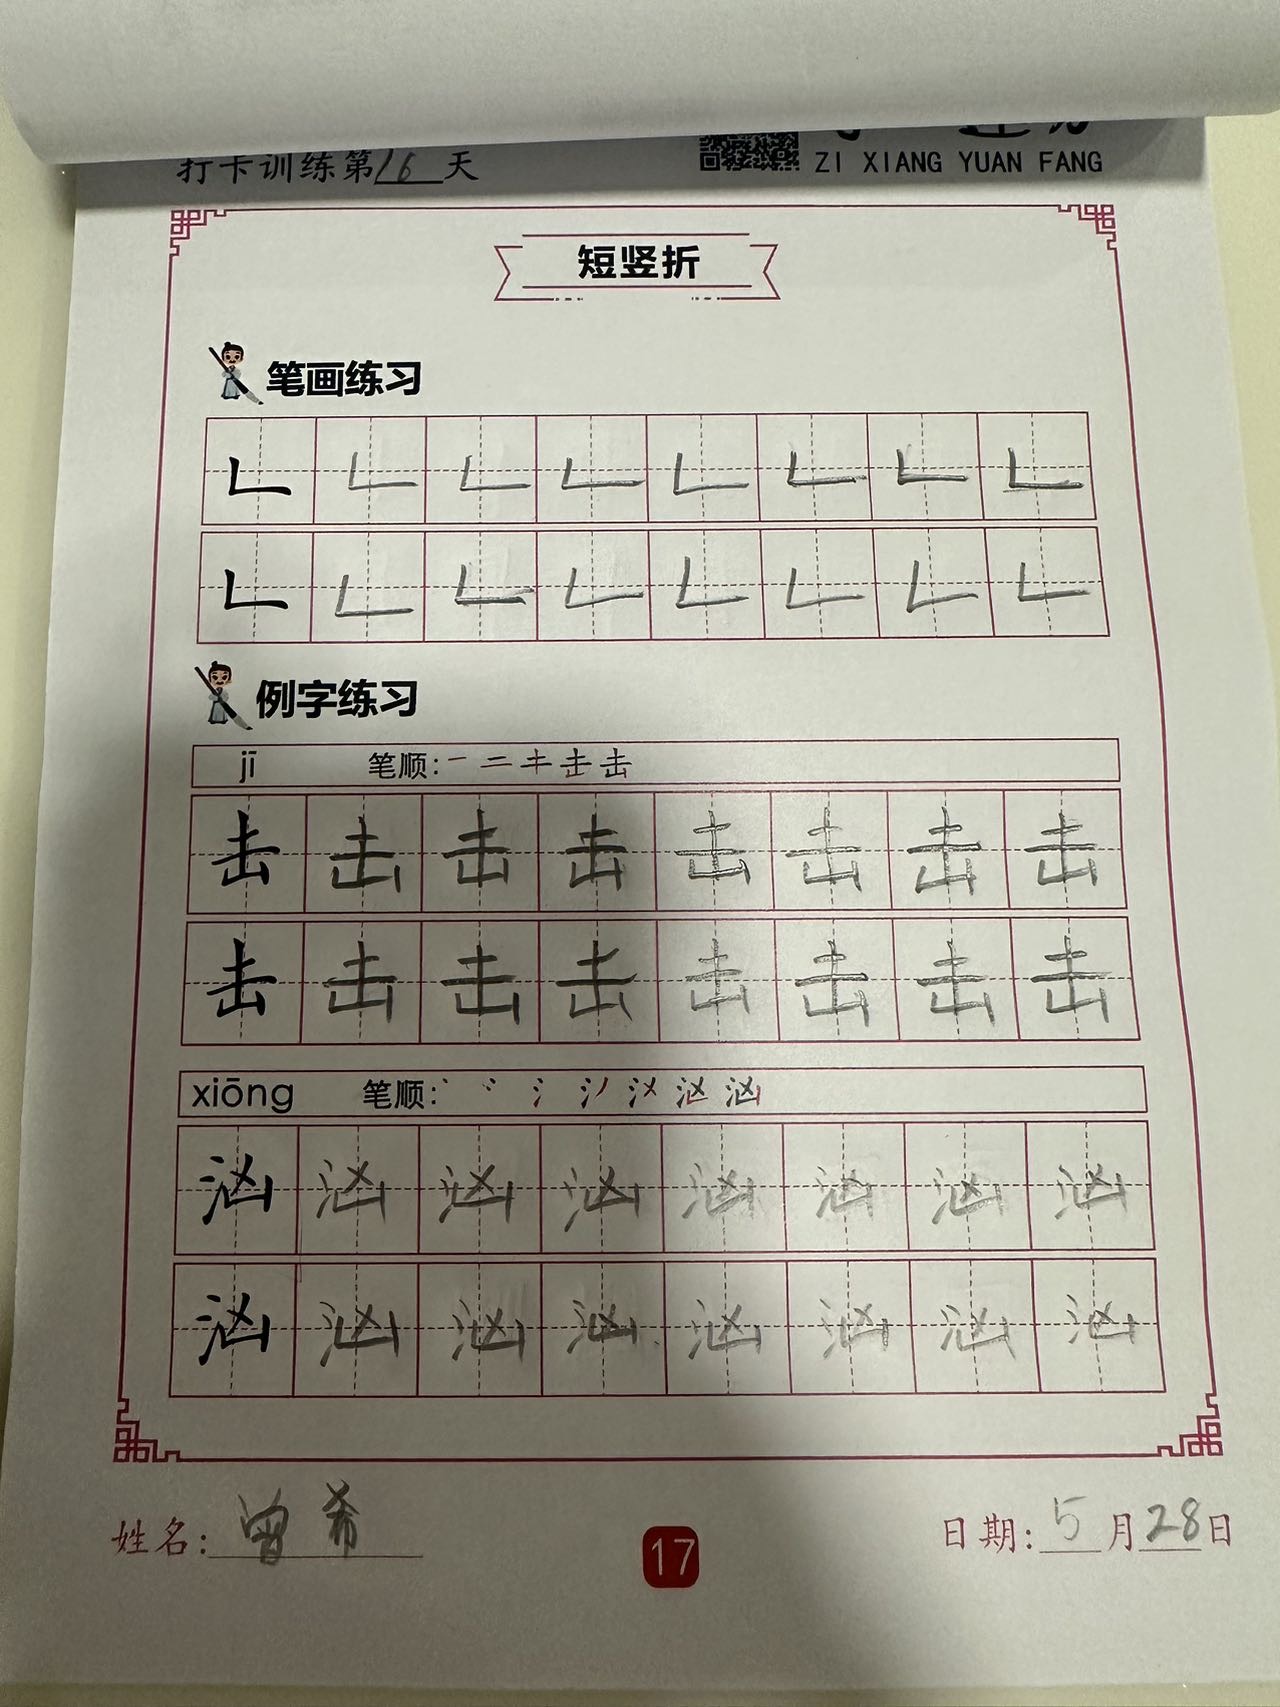 打卡训练第16天
ZI XIANG YUAN FANG
短竖折
笔画练习
𠃊 𠃊 𠃊 𠃊 𠃊 𠃊 𠃊 𠃊
𠃊 𠃊 𠃊 𠃊 𠃊 𠃊 𠃊 𠃊
例字练习
jī 笔顺:
击 击 击 击 击 击 击 击
击 击 击 击 击 击 击 击
xiōng 笔顺:
汹 汹 汹 汹 汹 汹 汹 汹
汹 汹 汹 汹 汹 汹 汹 汹
姓名: 曾希
17
日期: 5月28日